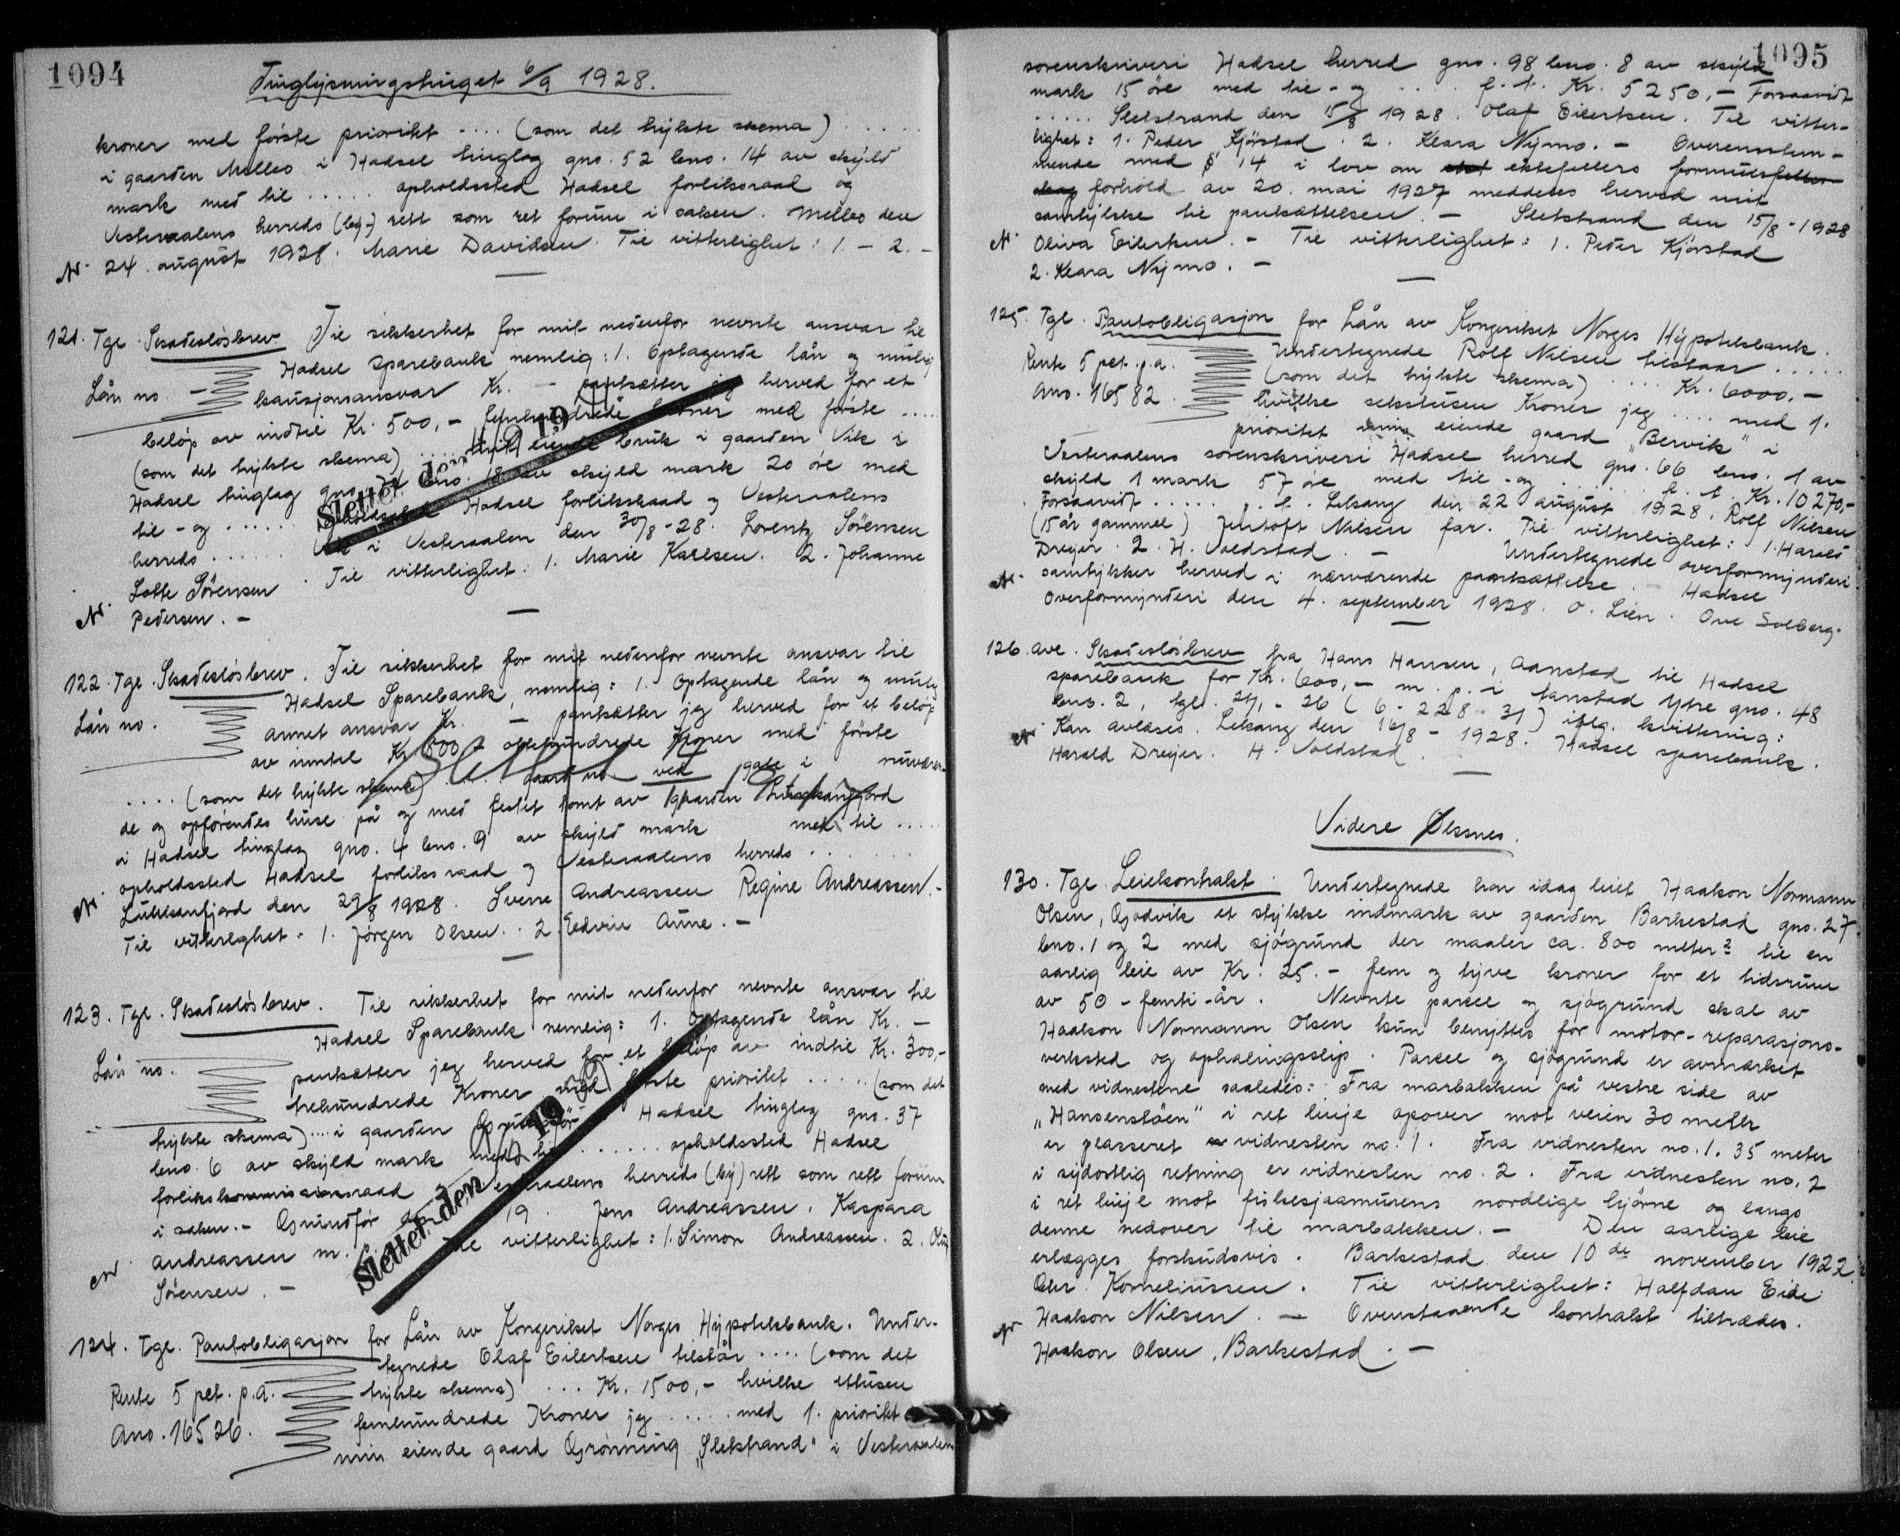 1094
Tinglysningstinget 6/9 1928.
kroner med første prioritet .... (som det trykte skema) .....
i gaarden Melbo i Hadsel tinglag gno. 52 bno. 14 av skyld
mark med til ..... opholdssted Hadsel forliksraad og
Vesteraalens herreds (by-) rett som ret forum i saken. Melbo den
24. august 1928. Marie Davidsen. Til vitterlighet: 1. - 2. -
121. Tgl. Skadesløsbrev. Til sikkerhet for mit nedenfor nevnte ansvar til
Hadsel Sparebank nemlig: 1. Optagende lån og mulig
Lån no. kausjonsansvar Kr. - pantsætter jeg herved for et
beløp av indtil Kr. 500,- femhundrede kroner med første ....
(som det trykte skema) ..... eiende bruk i gaarden Vik i
Hadsel tinglag gno. bno. 18 av skyld mark 20 øre med
til - og ...... opholdssted Hadsel forliksraad og Vesteraalens
herreds ...... Vik i Vesteraalen den 30/8 - 28. Lorentz Sørensen
Lotte Sørensen. Til vitterlighet: 1. Marie Karlsen. 2. Johanne
Pedersen. -
Slettet den 19
122. Tgl. Skadesløsbrev. Til sikkerhet for mit nedenfor nevnte ansvar til
Hadsel Sparebank, nemlig: 1. Optagende lån og mulig
Lån no. annet ansvar Kr. - pantsætter jeg herved for et beløp
av inntil Kr. 800,- ottehundrede kroner med første
.... (som det trykte skema) .... gaard no. ved gate i nuværen-
de og opførendes huse på og med festet tomt av gaarden
i Hadsel tinglag gno. 4 bno. 9 av skyld mark med til .....
opholdssted Hadsel forliksraad og Vesteraalens herreds .......
den 29/8 1928. Sverre Andreassen Regine Andreassen. -
Til vitterlighet: 1. Jørgen Olsen. 2 Edvin Aune. -
Slettet
123. Tgl. Skadesløsbrev. Til sikkerhet for mit nedenfor nevnte ansvar til
Hadsel Sparebank nemlig: 1. Optagende lån Kr. -
Lån no. pantsætter jeg herved for et beløp av indtil Kr. 300,-
trehundrede Kroner med første prioritet ..... (som det
trykte skema) .... i gaarden Grundfør i Hadsel tinglag gno. 37
bno. 6 av skyld mark med til ...... opholdssted Hadsel
forliksraad og Vesteraalens herreds (by) rett som rett forum
i saken. - Grundfør 19 . Jens Andreassen. Kaspara
Andreassen m. Til vitterlighet: 1. Simon Andreassen. 2.
Sørensen. -
Slettet den 19
124. Tgl. Pantobligasjon for Lån av Kongeriket Norges Hypotekbank. Under-
tegnede Olaf Eilertsen tilstår .... (som det
Rente 5 pct. p.a. trykte skema) ... Kr. 1500,- hvilke ettusen
Ano. 16526. femhundrede Kroner jeg ..... med 1. prioritet
min eiende gaard Grønning "Sletstrand" i Vesteraalens
1095
sorenskriveri Hadsel herred gno. 98 bno. 8 av skyld
mark 15 øre med til - og ..... f. t. Kr. 5250,- Forsaavidt
..... Sletstrand den 15/8 1928. Olaf Eilertsen. Til vitter-
lighet: 1. Peder Kjørstad. 2. Klara Nymo. - Overensstem-
mende med § 14 i lov om ektefellers formues
forhold av 20. mai 1927 meddeles herved mit
samtykke til pantsættelsen. - Sletstrand den 15/8 - 1928
Oliva Eilertsen. - Til vitterlighet: 1. Peder Kjørstad
2. Klara Nymo. -
125. Tgl. Pantobligasjon for Lån av Kongeriket Norges Hypotekbank.
Rente 5 pct. p.a. Undertegnede Rolf Nilsen tilstaar .....
Ano. 16582. (som det trykte skema) .... Kr. 6000,-
hvilke sekstusen Kroner jeg .... med 1.
prioritet min eiende gaard "Bervik" i
Vesteraalens sorenskriveri Hadsel herred gno. 66 bno. 1 av
skyld 1 mark 57 øre med til - og ...... f. t. Kr. 10270,-
Forsaavidt ..... f. t. den 22 august 1928. Rolf Nilsen
(15 år gammel) Nilsen far. Til vitterlighet: 1. Harald
Dreyer. 2. H. Voldstad. - Undertegnede overformynderi
samtykker herved i nærværende pantsættelse. - Hadsel
Overformynderi den 4. september 1928. O. Lien. Ove Solberg.
126. Avl. Skadesløsbrev fra Hans Hansen, Aanstad til Hadsel
sparebank for Kr. 600,- m. p. i Aanstad Ytre gno. 48
bno. 2, tgl. - 26 (6 - 228 - 31) iflg. kvittering:
Kan avlæses. den 16/8 - 1928. Hadsel sparebank.
Harald Dreyer. H. Voldstad.
Videre Øksnes.
130. Tgl. Leiekontrakt. Undertegnede har idag leiet Haakon Normann
Olsen, Godvik et stykke indmark av gaarden Barkestad gno. 27
bno. 1 og 2 med sjøgrund der maaler ca. 800 meter2 til en
aarlig leie av Kr: 25. - fem og tyve kroner for et tidsrum
av 50 - femti - år. Nevnte parsel og sjøgrund skal av
Haakon Normann Olsen kun benyttes for motor-reparasjons-
verksted og ophalingsslip. Parsel og sjøgrund er avmerket
med vidnestene saaledes: Fra marbakken på vestre side av
"Hansenstøen" i ret linje opover mot veien 30 meter
er plasseret vidnesten no. 1. Fra vidnesten no. 1. 35 meter
i sydostlig retning er vidnesten no. 2. Fra vidnesten no. 2
i ret linje mot fiskesjaamurens nordlige hjørne og langs
denne nedover til marbakken. - Den aarlige leie
erlægges forskudsvis. Barkestad den 10de november 1922.
Chr. Korneliussen. Til vitterlighet: Halfdan Eide
Haakon Nilsen. - Ovenstaaende kontrakt tiltrædes.
Haakon Olsen, Barkestad. -